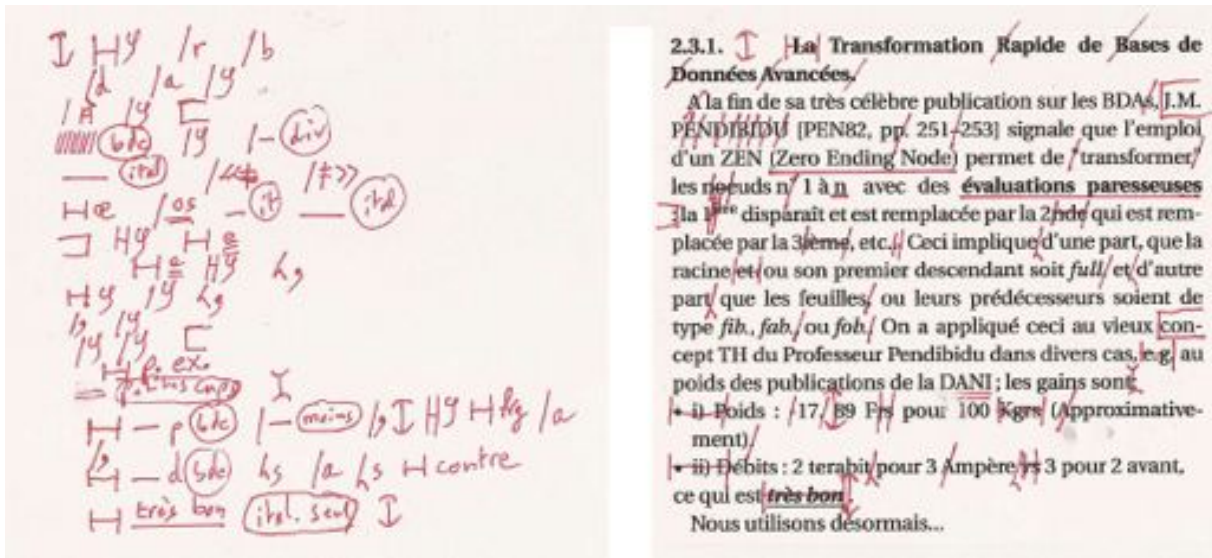 /r /b
/d /a
bdc div
ital
it ital
œ /os
e
e
p. ex.
p. tites caps
p bdc moins /a
d bdc /a contre
très bon ital. seul
2.3.1. La Transformation Rapide de Bases de
Données Avancées.
A la fin de sa très célèbre publication sur les BDAs, J.M.
PENDIBIDU [PEN82, pp. 251-253] signale que l'emploi
d'un ZEN (Zero Ending Node) permet de "transformer"
les noeuds n° 1 à n avec des évaluations paresseuses
: la 1ère disparaît et est remplacée par la 2nde qui est rem-
placée par la 3ième, etc.. Ceci implique d'une part, que la
racine et/ou son premier descendant soit full, et d'autre
part que les feuilles, ou leurs prédécesseurs soient de
type fib., fab., ou fob.. On a appliqué ceci au vieux con-
cept TH du Professeur Pendibidu dans divers cas, e.g. au
poids des publications de la DANI ; les gains sont
• i) Poids : 17, 89 Frs pour 100 Kgrs (Approximative-
ment).
• ii) Débits : 2 terabit pour 3 Ampère rs 3 pour 2 avant,
ce qui est très bon
Nous utilisons désormais...